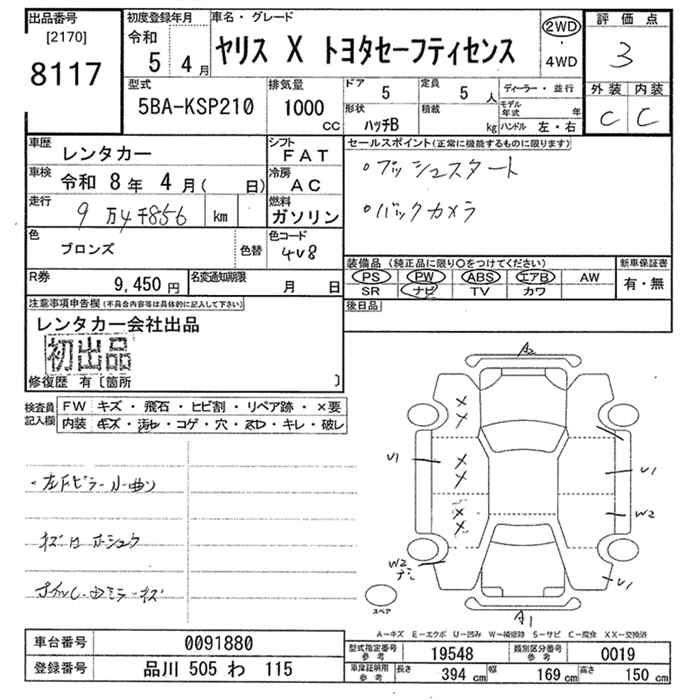 出品番号
[2170]
8117
初度登録年月
令和
5年 4月
車名・グレード
ヤリス X トヨタセーフティセンス
2WD
・
4WD
評価点
3
外装 内装
C C
型式
5BA-KSP210
排気量
1000
CC
ドア
5
定員
5人
形状
ハッチB
積載
kg
ディーラー・並行
モデル年式 年
ハンドル 左・右
車歴
レンタカー
シフト
FAT
車検
令和 8年 4月( 日)
冷房
AC
走行
9万4千856 km
燃料
ガソリン
色
ブロンズ
色替
色コード
4V8
R券
9,450円
名変通知期限
月 日
セールスポイント(正常に機能するものに限ります)
○プッシュスタート
○バックカメラ
装備品(純正品に限り○をつけてください)
PS PW ABS エアB AW
SR ナビ TV カワ
新車保証書
有・無
後日品
注意事項申告欄(不具合内容等は具体的に記入して下さい)
レンタカー会社出品
初出品
修復歴 有〔箇所 〕
検査員記入欄
FW キズ・飛石・ヒビ割・リペア跡・×要
内装 キズ・汚レ・コゲ・穴・スレ・キレ・破レ
キズ
A2
U1
U1
W2
W2
U1
A1
スペア
A-キズ E-エクボ U-凹み W-補修跡 S-サビ C-腐食 XX-交換済
車台番号
0091880
登録番号
品川 505 わ 115
型式指定番号
参考
19548
類別区分番号
参考
0019
車庫証明用
参考
長さ 394 cm
幅 169 cm
高さ 150 cm